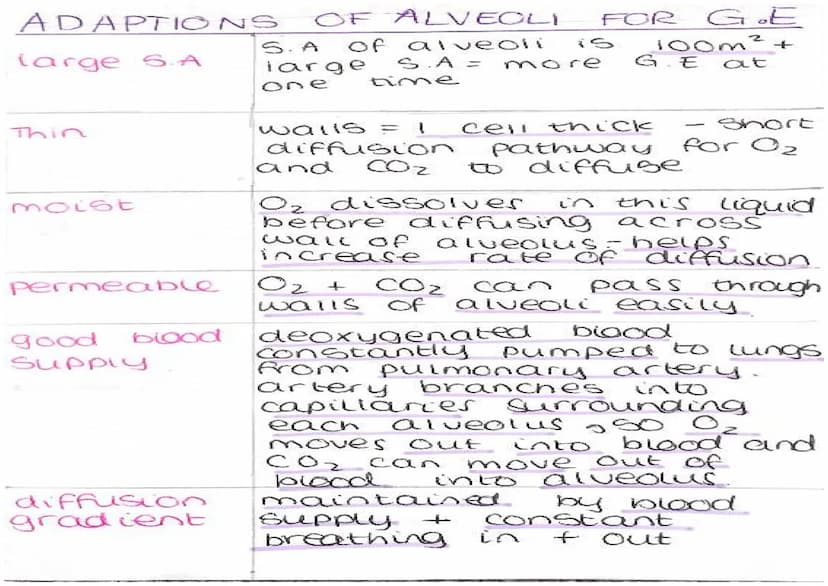 ADAPTIONS OF ALVEOLI FOR G.E
large S.A
S.A of alveoli is 100m² +
large S.A = more G.E at
one time
Thin
walls = 1 cell thick - short
diffusion pathway for O₂
and CO₂ to diffuse
moist
O₂ dissolves in this liquid
before diffusing across
wall of alveolus - helps
increase rate of diffusion
permeable
O₂ + CO₂ can pass through
walls of alveoli easily
good blood
supply
deoxygenated blood
constantly pumped to lungs
from pulmonary artery.
artery branches into
capillaries surrounding
each alveolus, so O₂
moves out into blood and
CO₂ can move out of
blood into alveolus.
diffusion
gradient
maintained by blood
supply + constant
breathing in + out